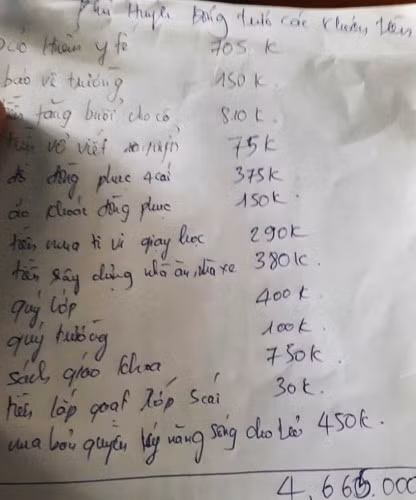 Phụ Huynh đóng trước các khoản tiền
bảo hiểm y tế 705.K
bảo vệ trường 150K.
tiền tăng buổi cho cô 810K.
tiền vở viết 75K
đồ đồng phục 4 cái 375K
áo khoác đồng phục 150K.
tiền mua ti vi giạy học 290K
tiền sây dựng nhà ăn, nhà xe 380K.
quỹ lớp 400K.
quỹ trường 100K.
sách giáo khoa 750K.
tiền lắp quạt lớp 5 cái 30K.
mua bản quyền kỹ năng sống cho trẻ 450K.
4.665.000